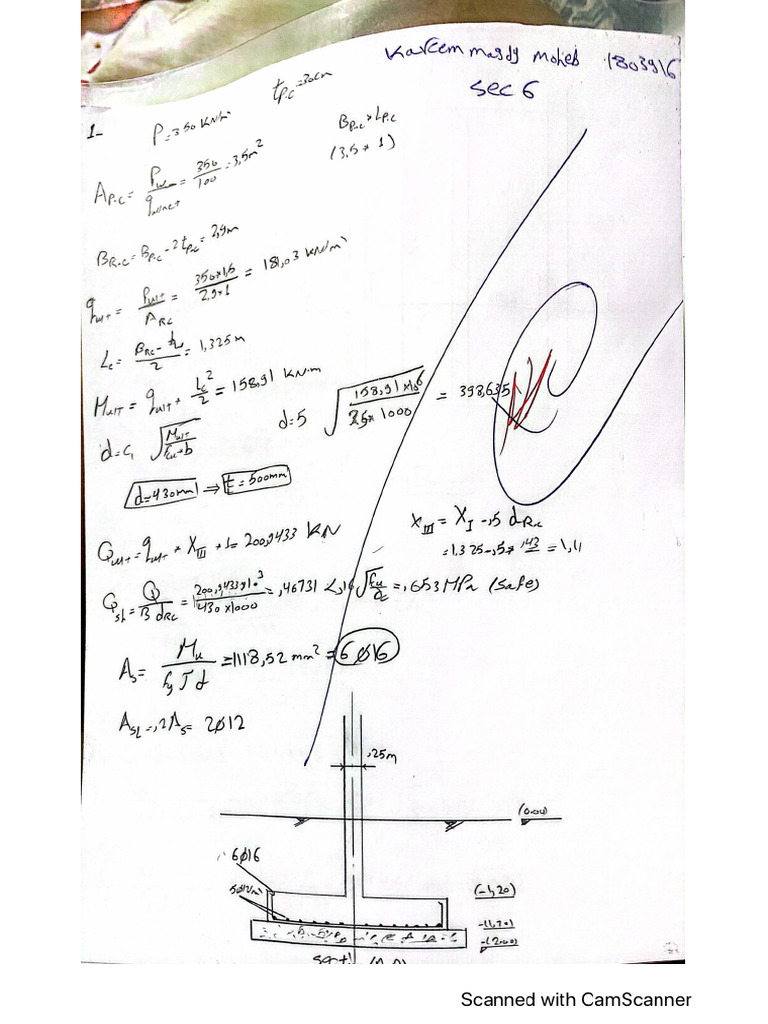 Kareem magdy Moheb 1803916
sec 6
1- P=350 KN/m tP.C=30cm
AP.C = Pw/qallnet = 350/100 = 3,5m² BP.C * LP.C
(3.5 * 1)
BR.C = BP.C - 2tP.C = 2,9m
qult = Pult/ARC = 350*1,5/2,9*1 = 181,03 KN/m²
Lc = BRC - tw/2 = 1,325 m
Mult = qult * Lc²/2 = 158,91 KN.m
d=C1 √Mult/Fcu*b d=5 √158,91*10⁶/25*1000 = 398,635
d=430mm ⇒ t=500mm
XIII = XI - ,5 dRC
= 1,325 - ,5* ,43 = 1,11
Qult = qult * XIII * 1 = 200,9433 KN
QsL = Q/B dRC = 200,9433*10³/430*1000 = ,46731 < ,16 √Fcu/δc = ,653 MPa (safe)
As = Mu/Fy J d = 1118,52 mm² = 6Ø16
AsL = ,2As = 2Ø12
,25m
(0.00)
6Ø16
5Ø12/m'
(-1,20)
-(1,70)
-(2.00)
Scanned with CamScanner